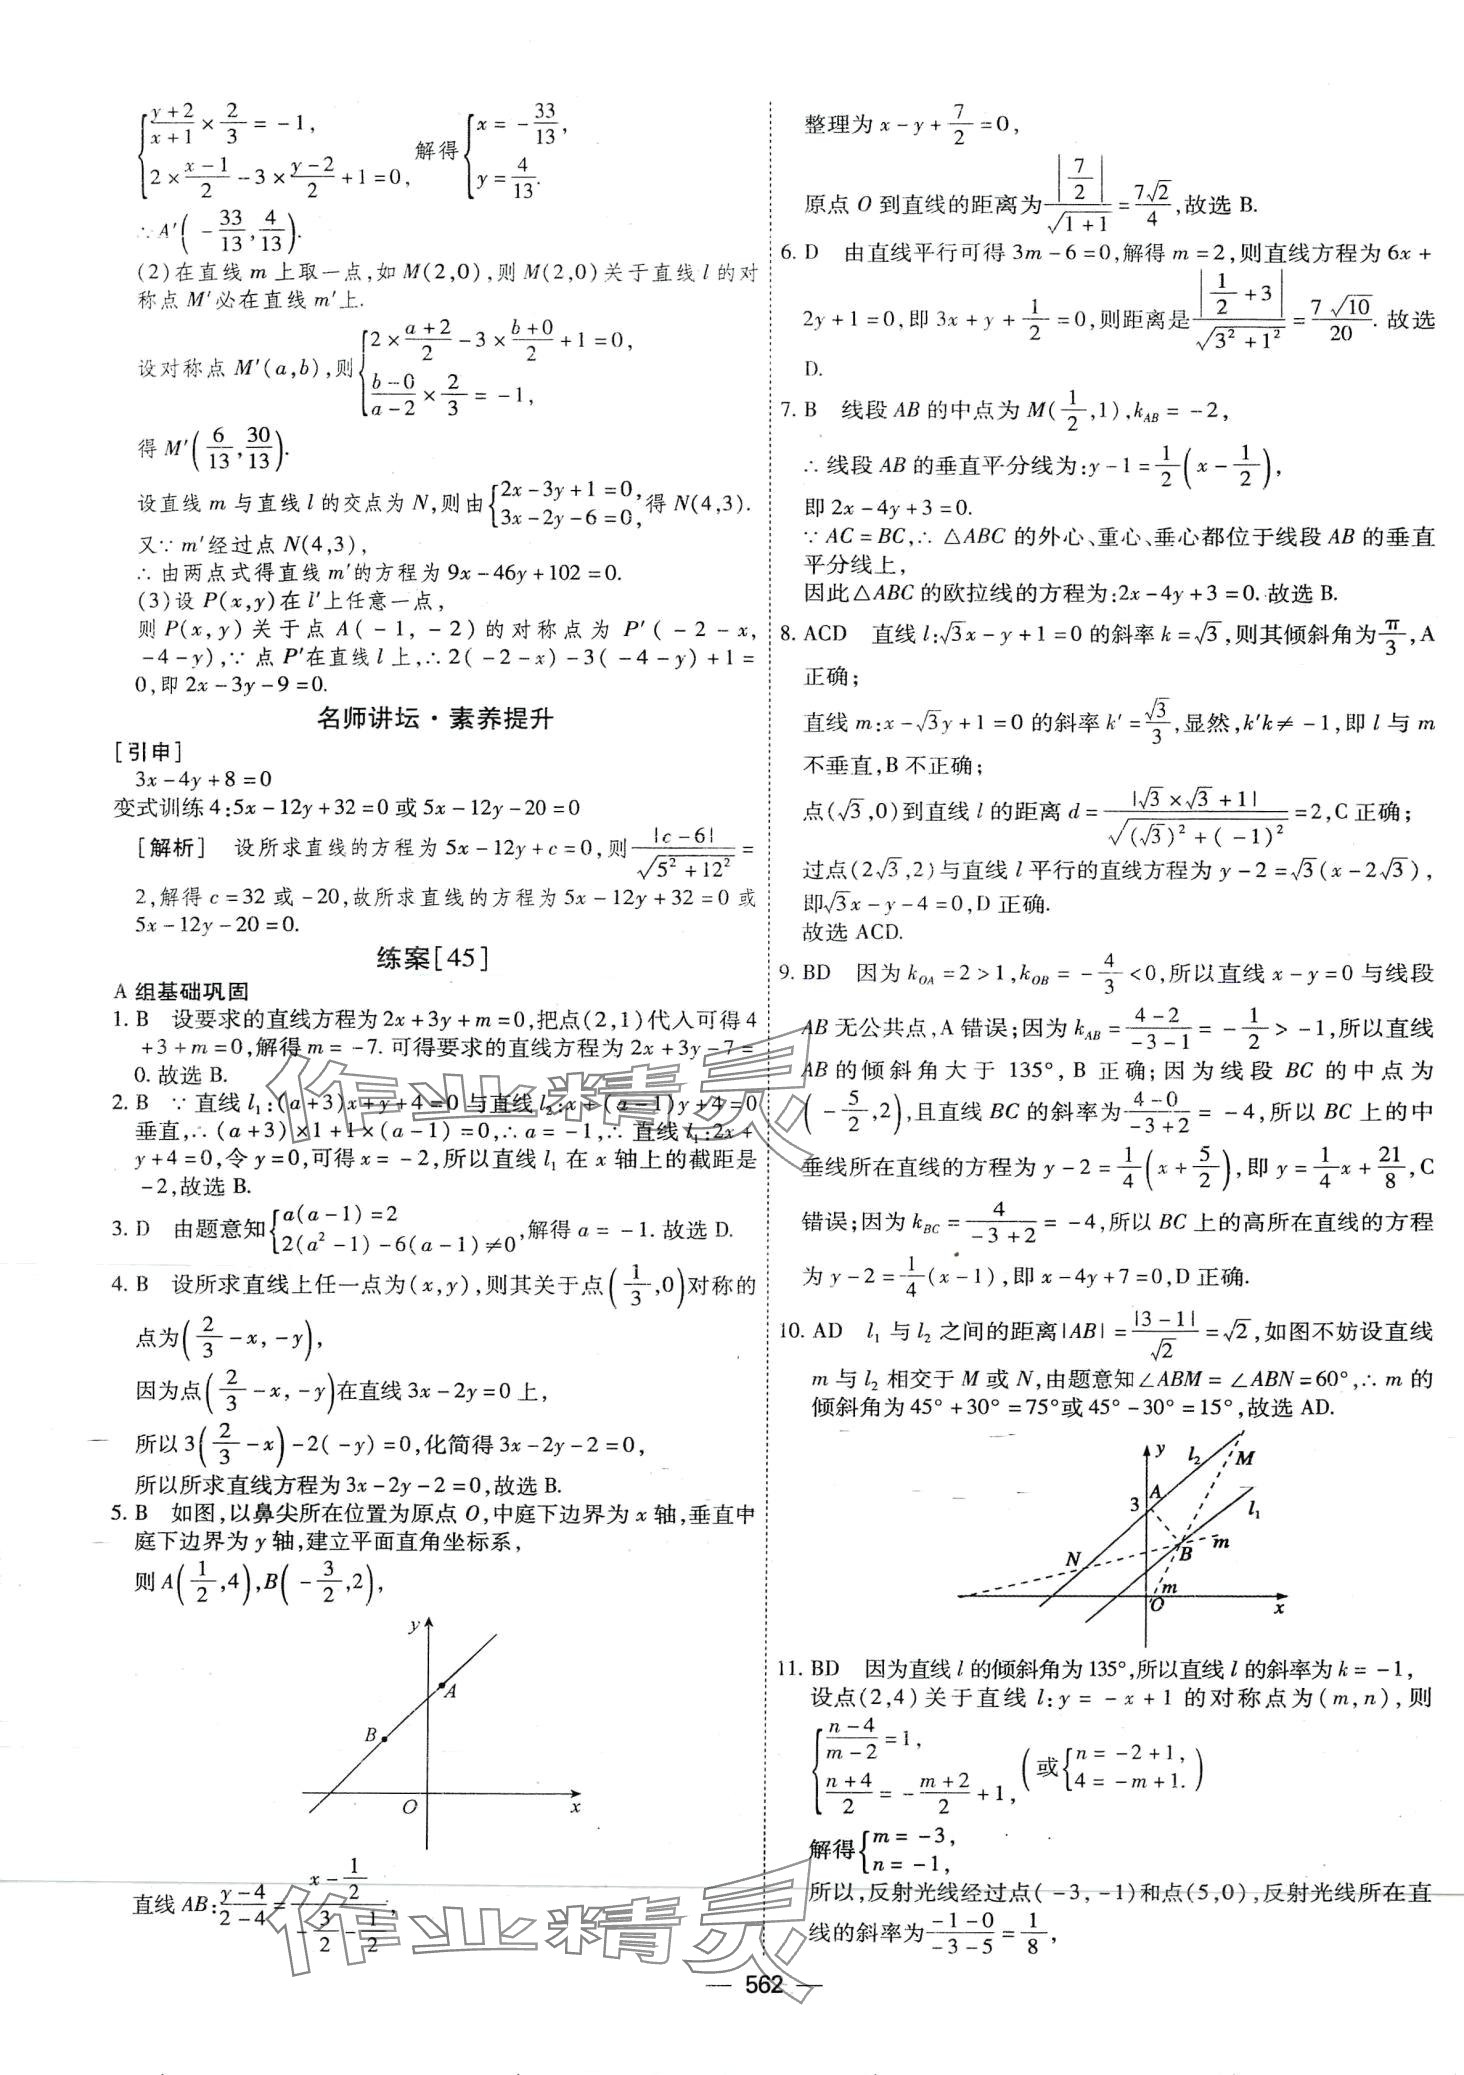 {(y+2)/(x+1)×2/3=-1, 2×(x-1)/2-3×(y-2)/2+1=0, 解得{x=-33/13, y=4/13.
∴A′(-33/13,4/13).
(2)在直线m上取一点,如M(2,0),则M(2,0)关于直线l的对
称点M′必在直线m′上.
设对称点M′(a,b),则{2×(a+2)/2-3×(b+0)/2+1=0, (b-0)/(a-2)×2/3=-1,
得M′(6/13,30/13).
设直线m与直线l的交点为N,则由{2x-3y+1=0, 3x-2y-6=0,得N(4,3).
又∵m′经过点N(4,3),
∴由两点式得直线m′的方程为9x-46y+102=0.
(3)设P(x,y)在l′上任意一点,
则P(x,y)关于点A(-1,-2)的对称点为P′(-2-x,
-4-y),∵点P′在直线l上,∴2(-2-x)-3(-4-y)+1=
0,即2x-3y-9=0.
名师讲坛·素养提升
[引申]
3x-4y+8=0
变式训练4:5x-12y+32=0或5x-12y-20=0
[解析] 设所求直线的方程为5x-12y+c=0,则|c-6|/√(5²+12²)=
2,解得c=32或-20,故所求直线的方程为5x-12y+32=0或
5x-12y-20=0.
练案[45]
A组基础巩固
1. B 设要求的直线方程为2x+3y+m=0,把点(2,1)代入可得4
+3+m=0,解得m=-7.可得要求的直线方程为2x+3y-7=
0.故选B.
2. B ∵直线l₁:(a+3)x+y+4=0与直线l₂:x+(a-1)y+4=0
垂直,∴(a+3)×1+1×(a-1)=0,∴a=-1,∴直线l₁:2x+
y+4=0,令y=0,可得x=-2,所以直线l₁在x轴上的截距是
-2,故选B.
3. D 由题意知{a(a-1)=2 2(a²-1)-6(a-1)≠0,解得a=-1.故选D.
4. B 设所求直线上任一点为(x,y),则其关于点(1/3,0)对称的
点为(2/3-x,-y),
因为点(2/3-x,-y)在直线3x-2y=0上,
所以3(2/3-x)-2(-y)=0,化简得3x-2y-2=0,
所以所求直线方程为3x-2y-2=0,故选B.
5. B 如图,以鼻尖所在位置为原点O,中庭下边界为x轴,垂直中
庭下边界为y轴,建立平面直角坐标系,
则A(1/2,4),B(-3/2,2),
y
A
B
O x
直线AB:(y-4)/(2-4)=(x-1/2)/(-3/2-1/2),
整理为x-y+7/2=0,
原点O到直线的距离为|7/2|/√(1+1)=7√2/4,故选B.
6. D 由直线平行可得3m-6=0,解得m=2,则直线方程为6x+
2y+1=0,即3x+y+1/2=0,则距离是|1/2+3|/√(3²+1²)=7√10/20.故选
D.
7. B 线段AB的中点为M(1/2,1),k_AB=-2,
∴线段AB的垂直平分线为:y-1=1/2(x-1/2),
即2x-4y+3=0.
∵AC=BC,∴△ABC的外心、重心、垂心都位于线段AB的垂直
平分线上,
因此△ABC的欧拉线的方程为:2x-4y+3=0.故选B.
8. ACD 直线l:√3x-y+1=0的斜率k=√3,则其倾斜角为π/3,A
正确;
直线m:x-√3y+1=0的斜率k′=√3/3,显然,k′k≠-1,即l与m
不垂直,B不正确;
点(√3,0)到直线l的距离d=|√3×√3+1|/√((√3)²+(-1)²)=2,C正确;
过点(2√3,2)与直线l平行的直线方程为y-2=√3(x-2√3),
即√3x-y-4=0,D正确.
故选ACD.
9. BD 因为k_OA=2>1,k_OB=-4/3<0,所以直线x-y=0与线段
AB无公共点,A错误;因为k_AB=(4-2)/(-3-1)=-1/2>-1,所以直线
AB的倾斜角大于135°,B正确;因为线段BC的中点为
(-5/2,2),且直线BC的斜率为(4-0)/(-3+2)=-4,所以BC上的中
垂线所在直线的方程为y-2=1/4(x+5/2),即y=1/4x+21/8,C
错误;因为k_BC=4/(-3+2)=-4,所以BC上的高所在直线的方程
为y-2=1/4(x-1),即x-4y+7=0,D正确.
10. AD l₁与l₂之间的距离|AB|=|3-1|/√2=√2,如图不妨设直线
m与l₂相交于M或N,由题意知∠ABM=∠ABN=60°,∴m的
倾斜角为45°+30°=75°或45°-30°=15°,故选AD.
y l₂ M
3 A l₁
N B m
O m x
11. BD 因为直线l的倾斜角为135°,所以直线l的斜率为k=-1,
设点(2,4)关于直线l:y=-x+1的对称点为(m,n),则
{(n-4)/(m-2)=1, (n+4)/2=-(m+2)/2+1, (或{n=-2+1, 4=-m+1.)
解得{m=-3, n=-1,
所以,反射光线经过点(-3,-1)和点(5,0),反射光线所在直
线的斜率为(-1-0)/(-3-5)=1/8,
— 562 —
作业精灵
作业精灵